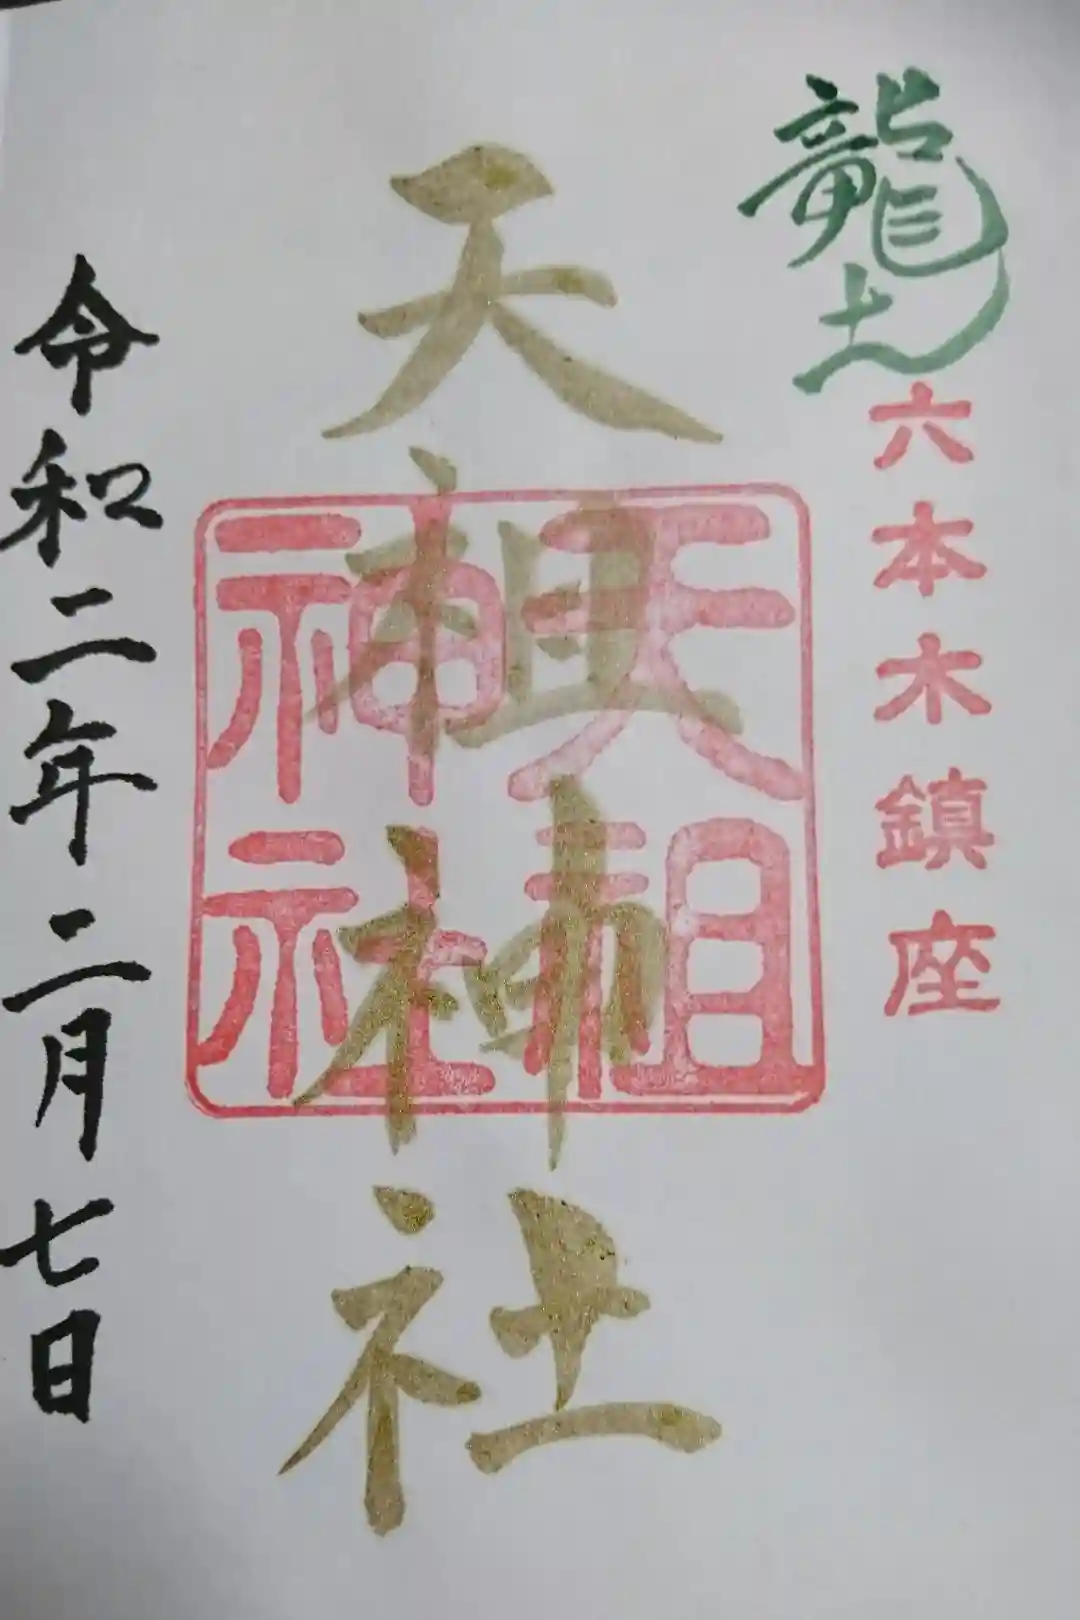 龍土
六本木鎮座
天祖神社
天祖神社
令和二年二月七日